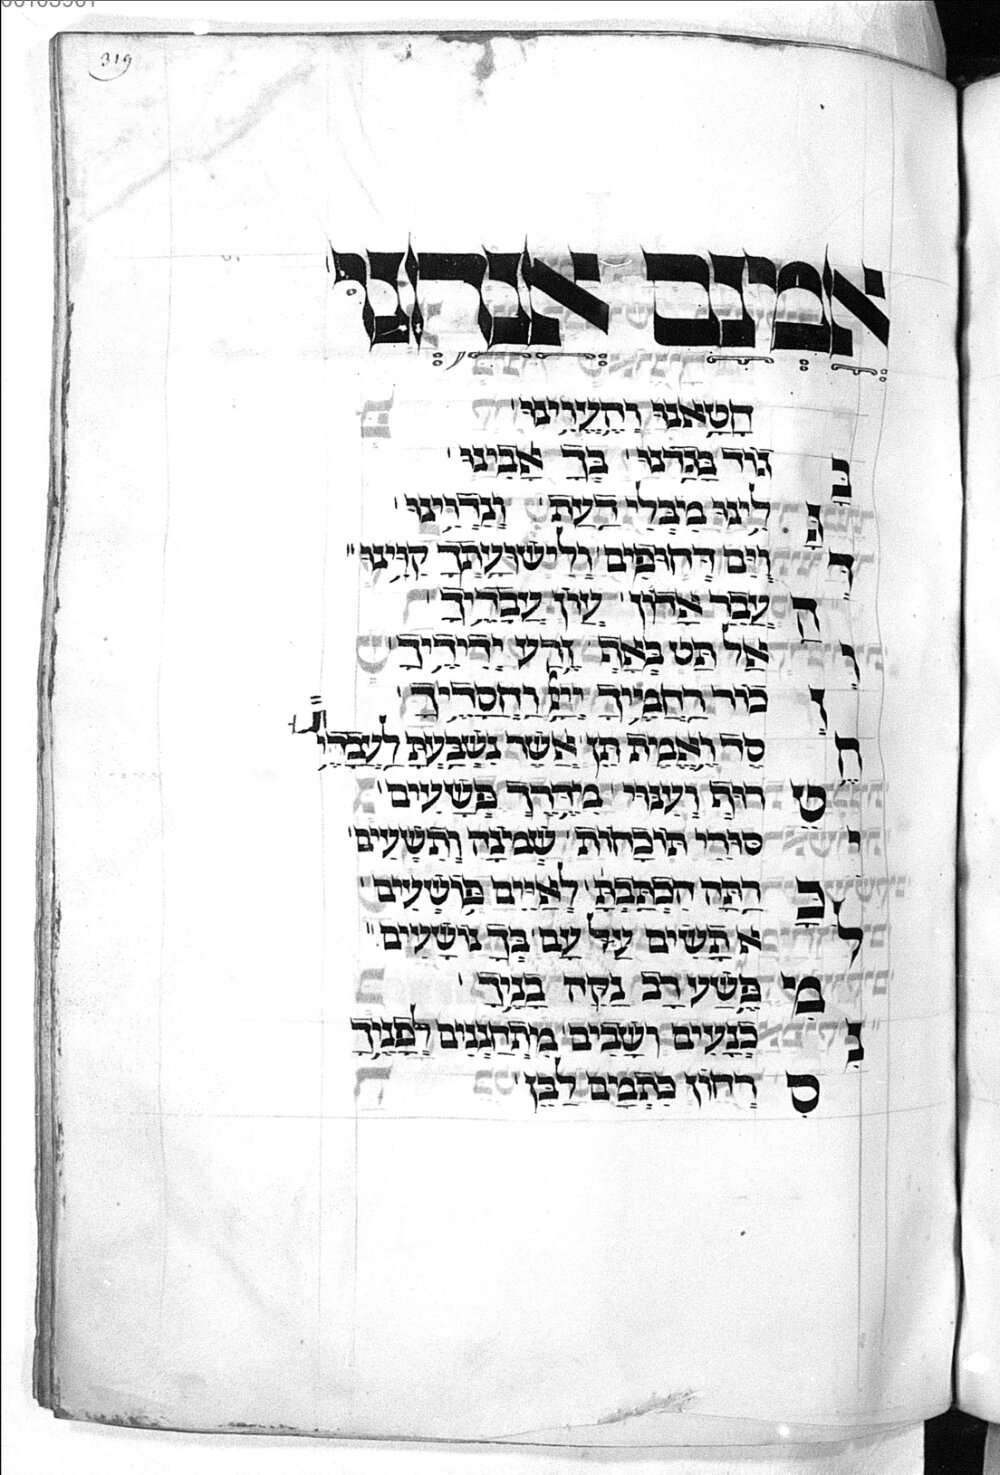 אמנם אנחנו
חטאנו והעוינו
בגוד בגדנו בך אבינו
גלינו מבלי דעת ונדוינו
דוויים דחופים ולישועתך קוינו
העבר אדון עון עבדיך
ואל תט באף זרע ידידיך
זכור רחמיך ייי וחסדיך
319
חסד ואמת תן אשר נשבעת לעבדיך
וענוי פשעים
יסורי תוכחות שמנה ותשעים
כרתה הכתבת לאיים פושעים
לא תשים על עם בך נושעים
מי פשע רב נקה בניך
נכנעים ושבים מתחננים לפניך
סרחון כתמים לבן